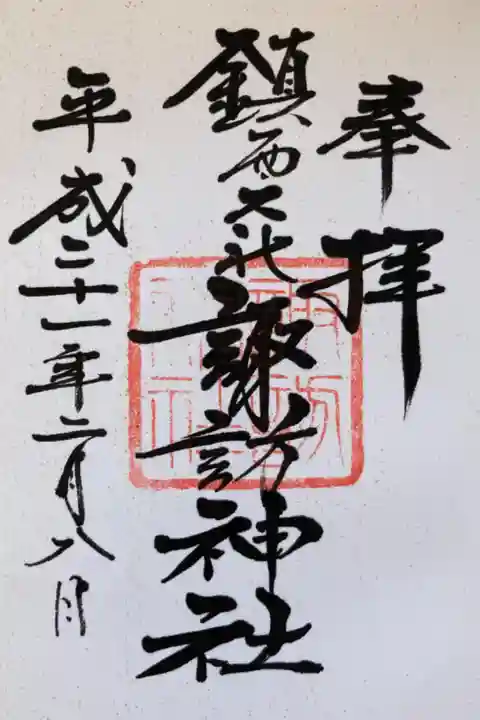 奉拝
鎮西大社諏訪神社
平成三十一年二月八日